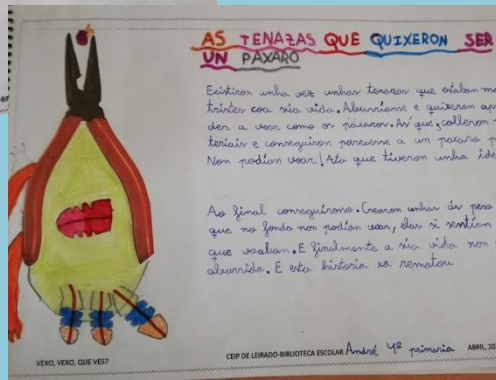 AS TENAZAS QUE QUIXERON SER
UN PAXARO
Existiron unha vez unhas tenazas que estaban
tristes coa súa vida. Aburríanse e quixeron
der a voar como os páxaros. Así que, colleron
teriais e conseguiron parecerse a un paxaro
Non podían voar! Ata que tiveron unha
Ao final conseguírono. Crearon unhas ás pero
que no fondo non podían voar, elas si sentían
que voaban. E finalmente a súa vida non
aburrida. E esta historia xa rematou
VEXO, VEXO, QUE VES?
CEIP DE LEIRADO-BIBLIOTECA ESCOLAR André 4º primaria ABRIL,